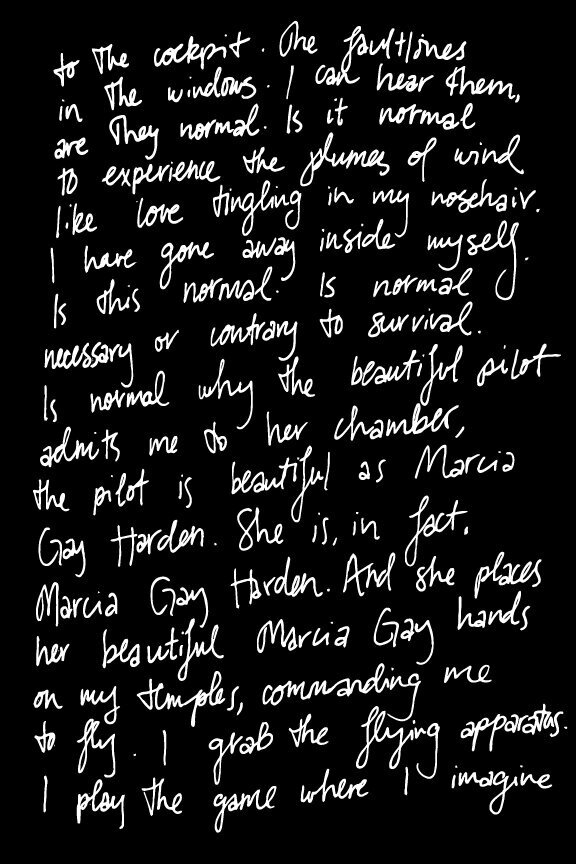 to the cockpit. The faultlines
in the windows. I can hear them,
are they normal. Is it normal
to experience the plumes of wind
like love tingling in my nosehair.
I have gone away inside myself.
Is this normal. Is normal
necessary or contrary to survival.
Is normal why the beautiful pilot
admits me to her chamber,
the pilot is beautiful as Marcia
Gay Harden. She is, in fact,
Marcia Gay Harden. And she places
her beautiful Marcia Gay hands
on my temples, commanding me
to fly. I grab the flying apparatus.
I play the game where I imagine